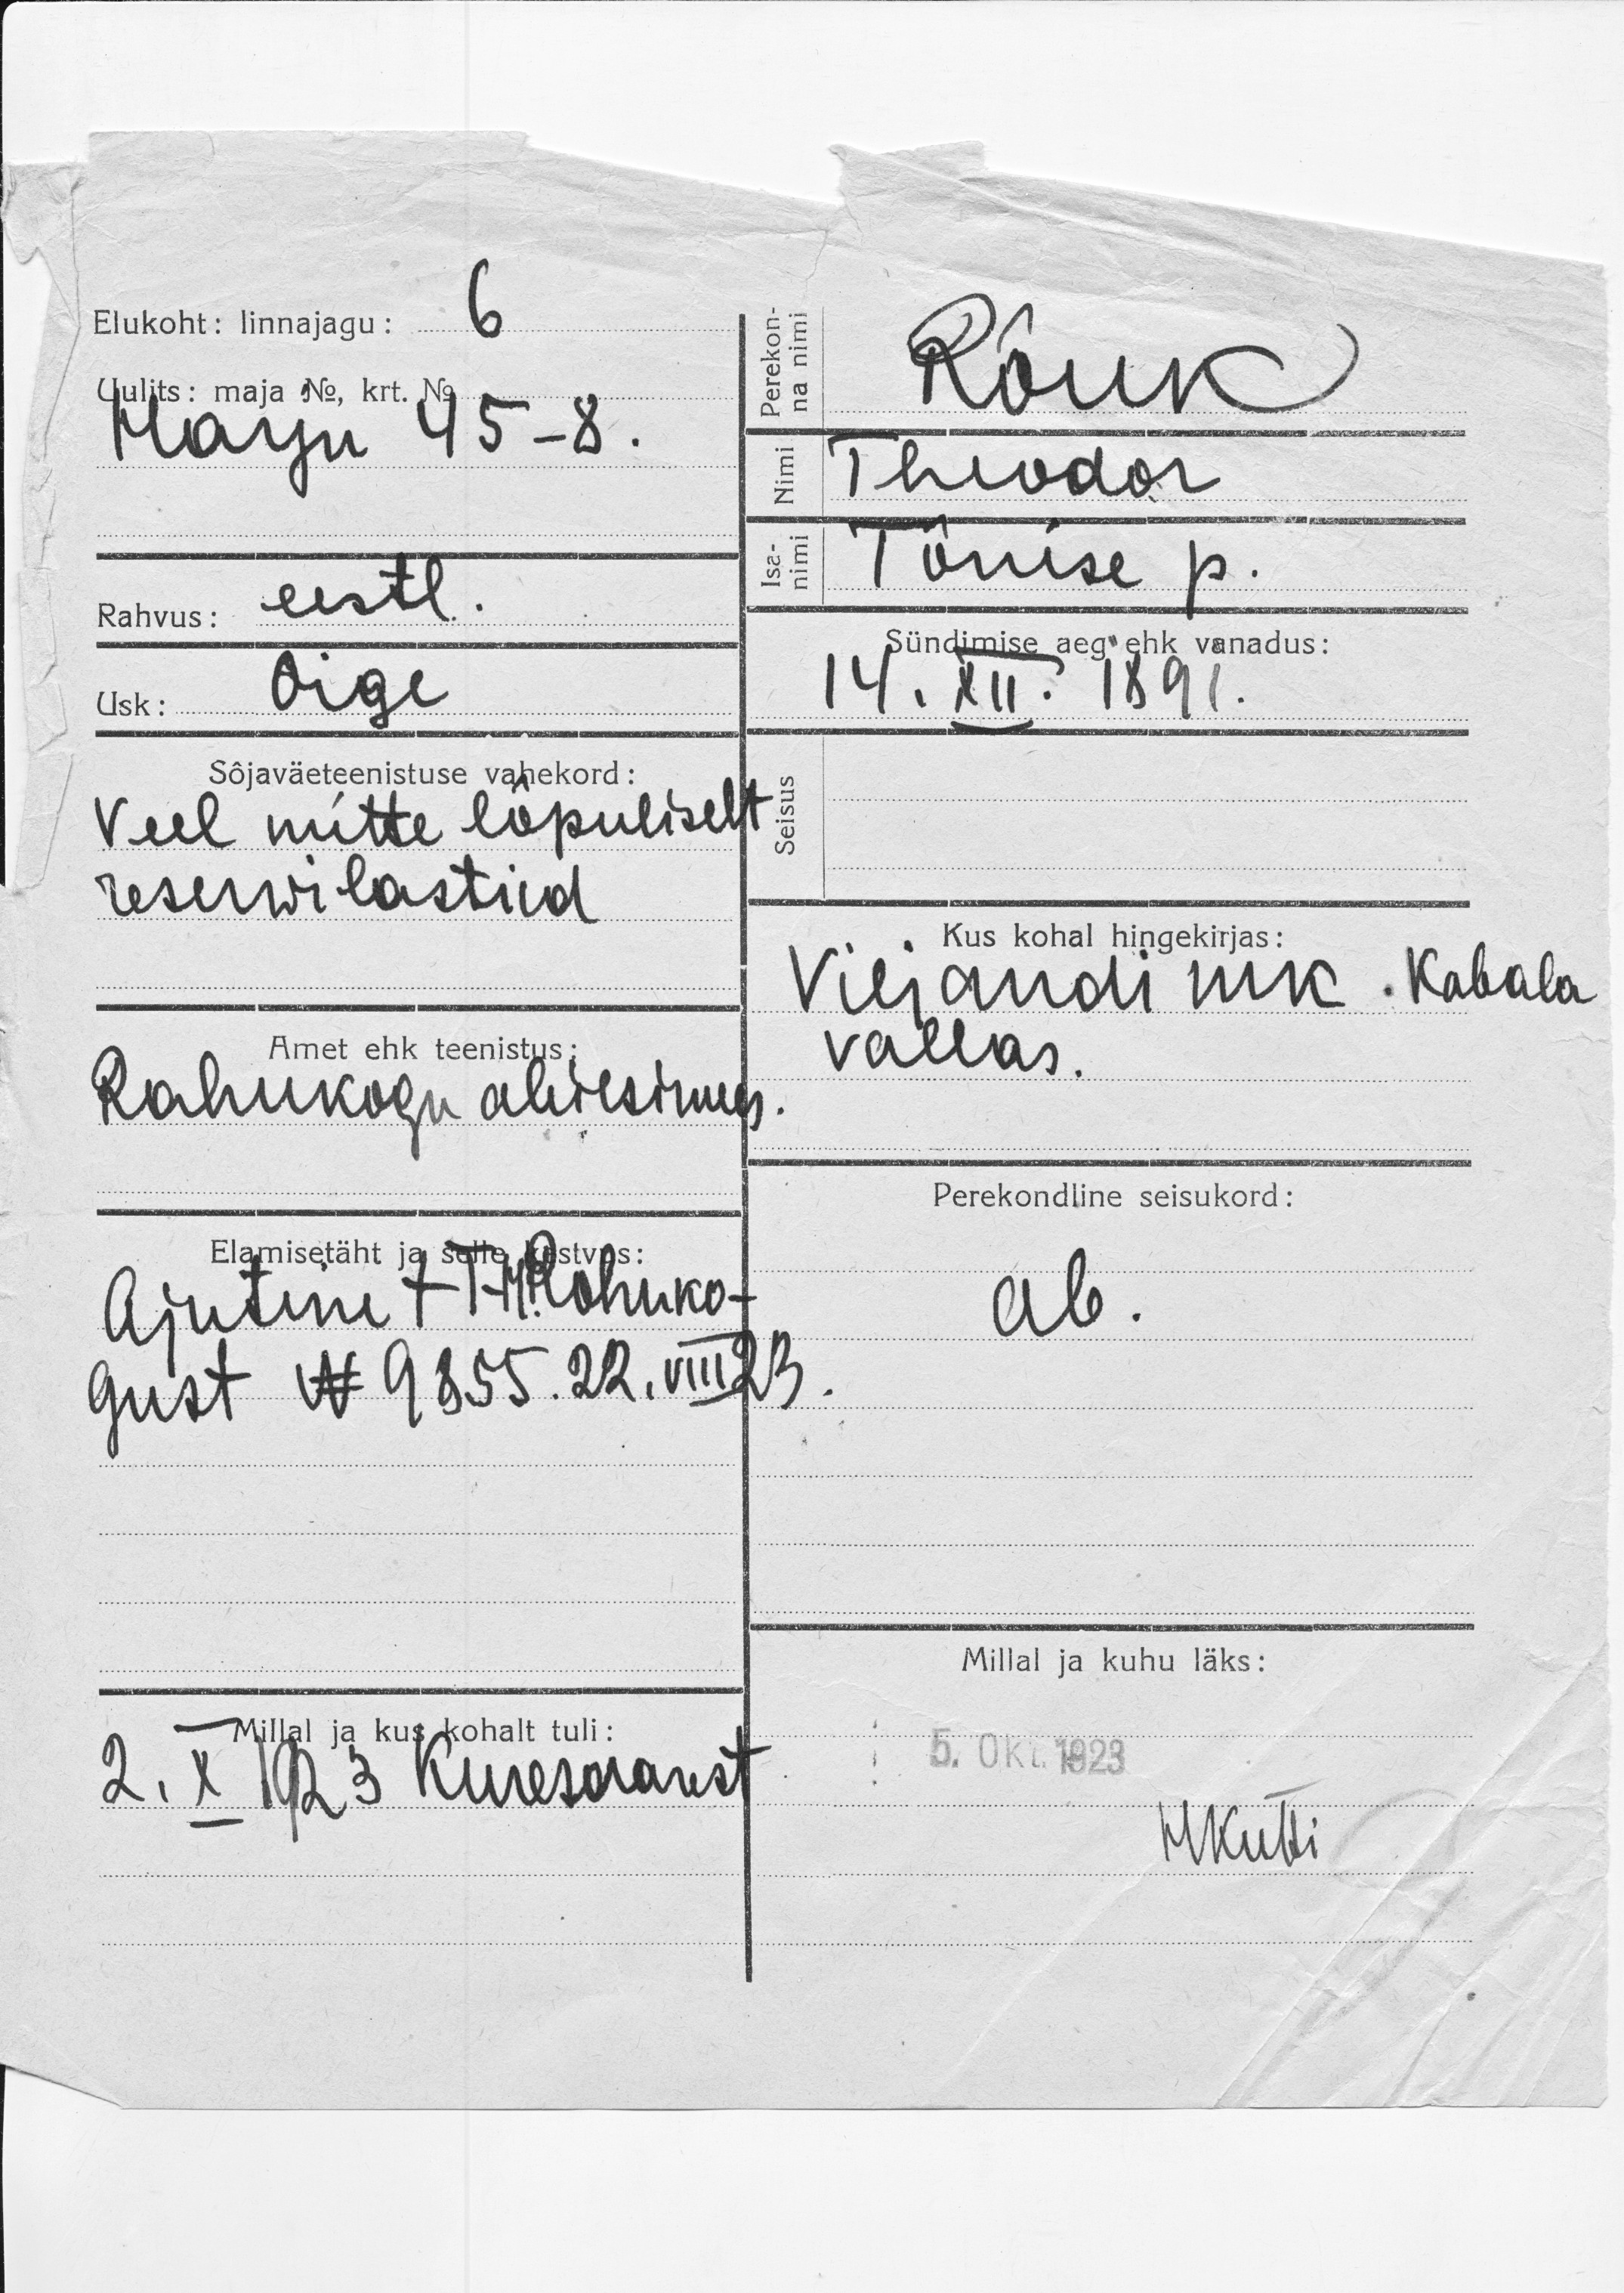 Elukoht: linnajagu: 6
Uulits: maja №, krt. №
Harju 45-8.
Rahvus: eestl.
Usk: õige
Sôjaväeteenistuse vahekord:
Veel mitte lõpuliselt
reserwilastud
Amet ehk teenistus:
Rahukogu abiesimees.
Elamisetäht ja selle kestvus:
Ajutine t T-H. Rahuko-
gust № 9855. 22. VIII 23.
Millal ja kus kohalt tuli:
2. X 1923 Kuresaarest
Perekon-
na nimi
Rõuk
Nimi Theodor
Isa-
nimi
Tõnise p.
Sündimise aeg ehk vanadus:
14. XII. 1891.
Seisus
Kus kohal hingekirjas:
Viljandi mk. Kabala
vallas.
Perekondline seisukord:
ab.
Millal ja kuhu läks:
5. Okt. 1923
MKutti